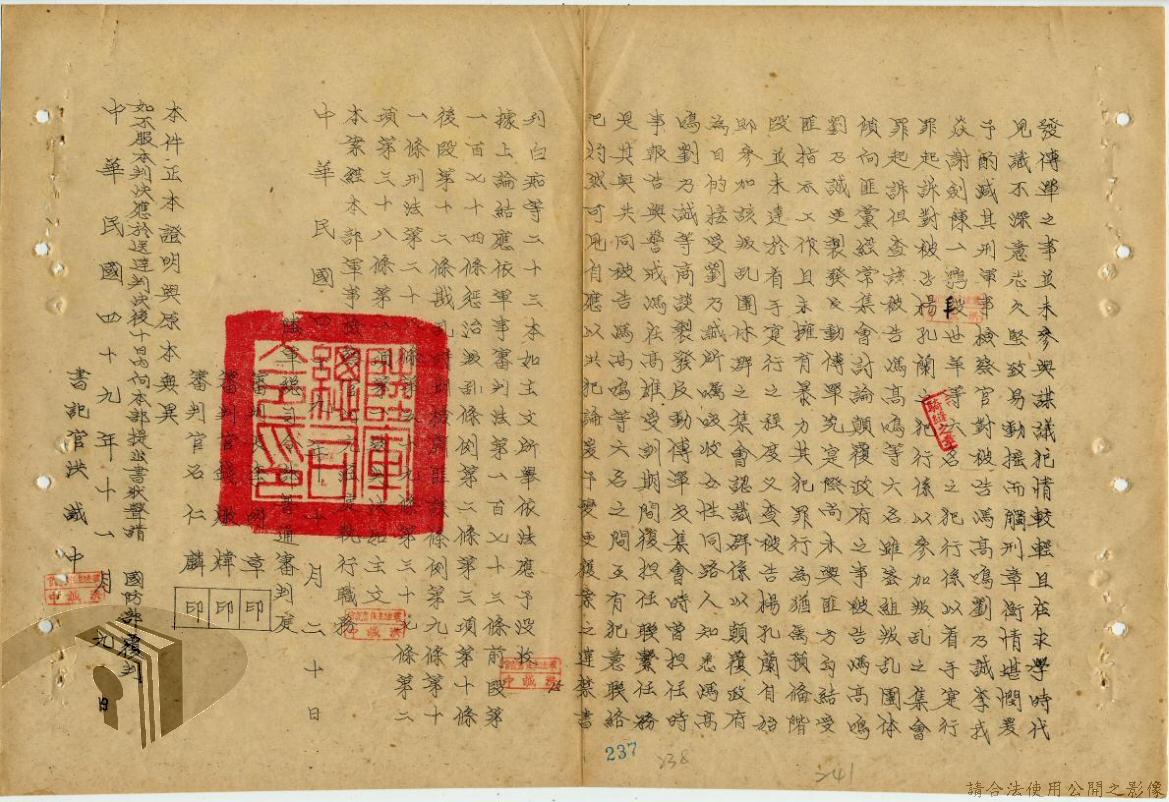 發傳單之事並未參與謀議犯情較輕且在求學時代
見識不深意志欠堅致易動搖而觸刑章衡情堪憫爰
予酌減其刑軍事檢察官對被告馮高鳴劉乃誠李我
焱謝劍陳一鶚殷世華等六名之犯行係以着手實行
罪起訴對被告楊孔蘭之犯行係以參加叛乱之集會
罪起訴但查該被告馮高鳴等六名雖簽組叛乱團体
傾向匪黨經常集會討論顛覆政府之事被告馮高鳴
劉乃誠更製發反動傳單究實際尚未與匪方勾結受
匪指示工作且未擁有暴力其犯罪行為猶屬預備階
段並未達於着手實行之程度又查被告楊孔蘭有始
即參加該叛乱團体群之集會認識群係以顛覆政府
為目的接受劉乃誠所囑吸收女性同路人知悉馮高
鳴劉乃誠等商談製發反動傳單及集會時曾担任時
事報告與警戒馮在高雄受訓期間復担任聯繫任務
是其與共同被告馮高鳴等六名之間互有犯意聯絡
已灼然可見自應以共犯論爰予變更獲案之違禁書
刋白痴等二十三本如主文所舉依法應予没收
據上論結應依軍事審判法第一百七十三條前段第
一百七十四條懲治叛乱條例第二條第三項第十條
後段第十二條戡乱時期檢肅匪諜條例第九條第十
一條刑法第二十條第五十九條第三十七條第二
項第三十八條第一項第一款判決如主文
本案經本部軍事檢察官執行職務
中華民國四十九年十月二十日
陸軍總司令部普通審判庭
審判長章 印
審判官錢煒 印
審判官名仁麟 印
本件正本證明與原本無異
如不服本判決應於送達判決後十日內向本部提出書狀聲請國防部覆判
中華民國四十九年十一月九日
書記官洪誠中
237
238
241
請合法使用公開之影像